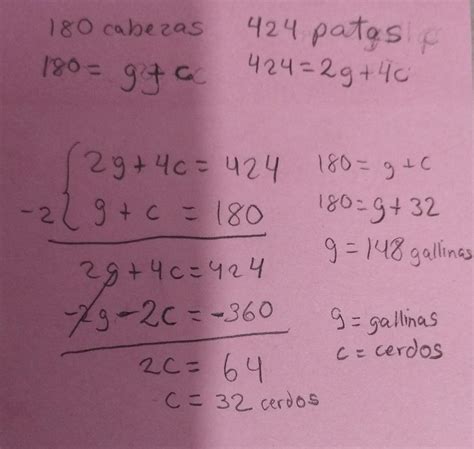 180 cabezas 424 patas
180 = g + c 424 = 2g + 4c
2g + 4c = 424 180 = g + c
-2 g + c = 180 180 = g + 32
g = 148 gallinas
2g + 4c = 424
-2g - 2c = -360 g = gallinas
c = cerdos
2c = 64
c = 32 cerdos